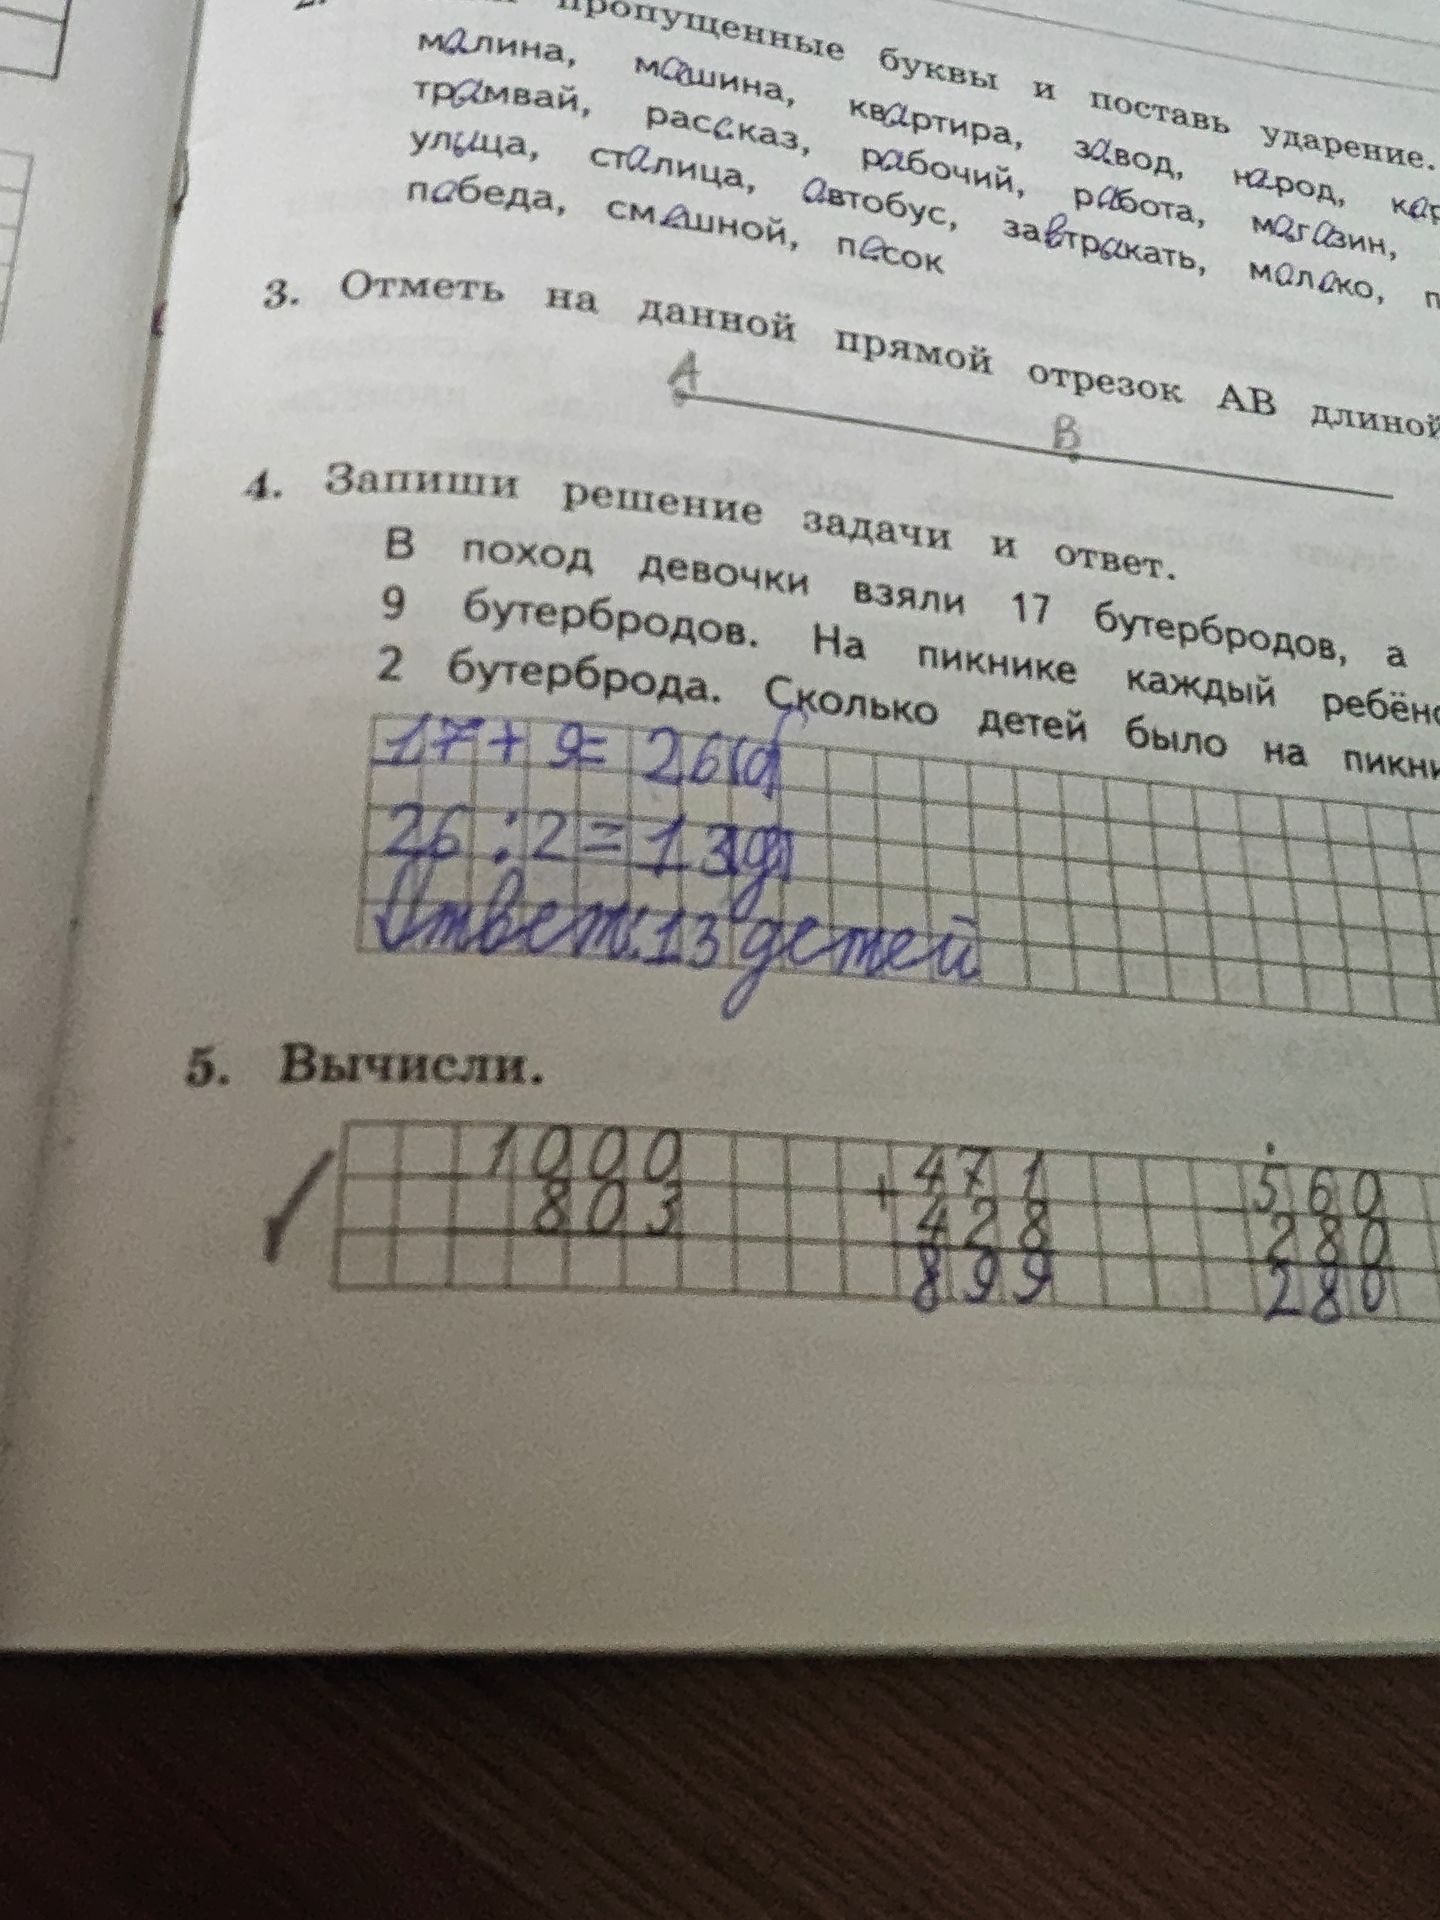 пропущенные буквы и поставь ударение.
малина, машина, квартира, завод, народ,
трамвай, рассказ, рабочий, работа, магазин,
улица, сталица, автобус, завтракать, малако,
пабеда, смешной, песок
3. Отметь на данной прямой отрезок АВ длиной
А
В
4. Запиши решение задачи и ответ.
В поход девочки взяли 17 бутербродов, а
9 бутербродов. На пикнике каждый
2 бутерброда. Сколько детей было на
17+9=26(б)
26:2=13(д)
Ответ:13 детей
5. Вычисли.
1000 + 471 - 560
803 428 280
899 280